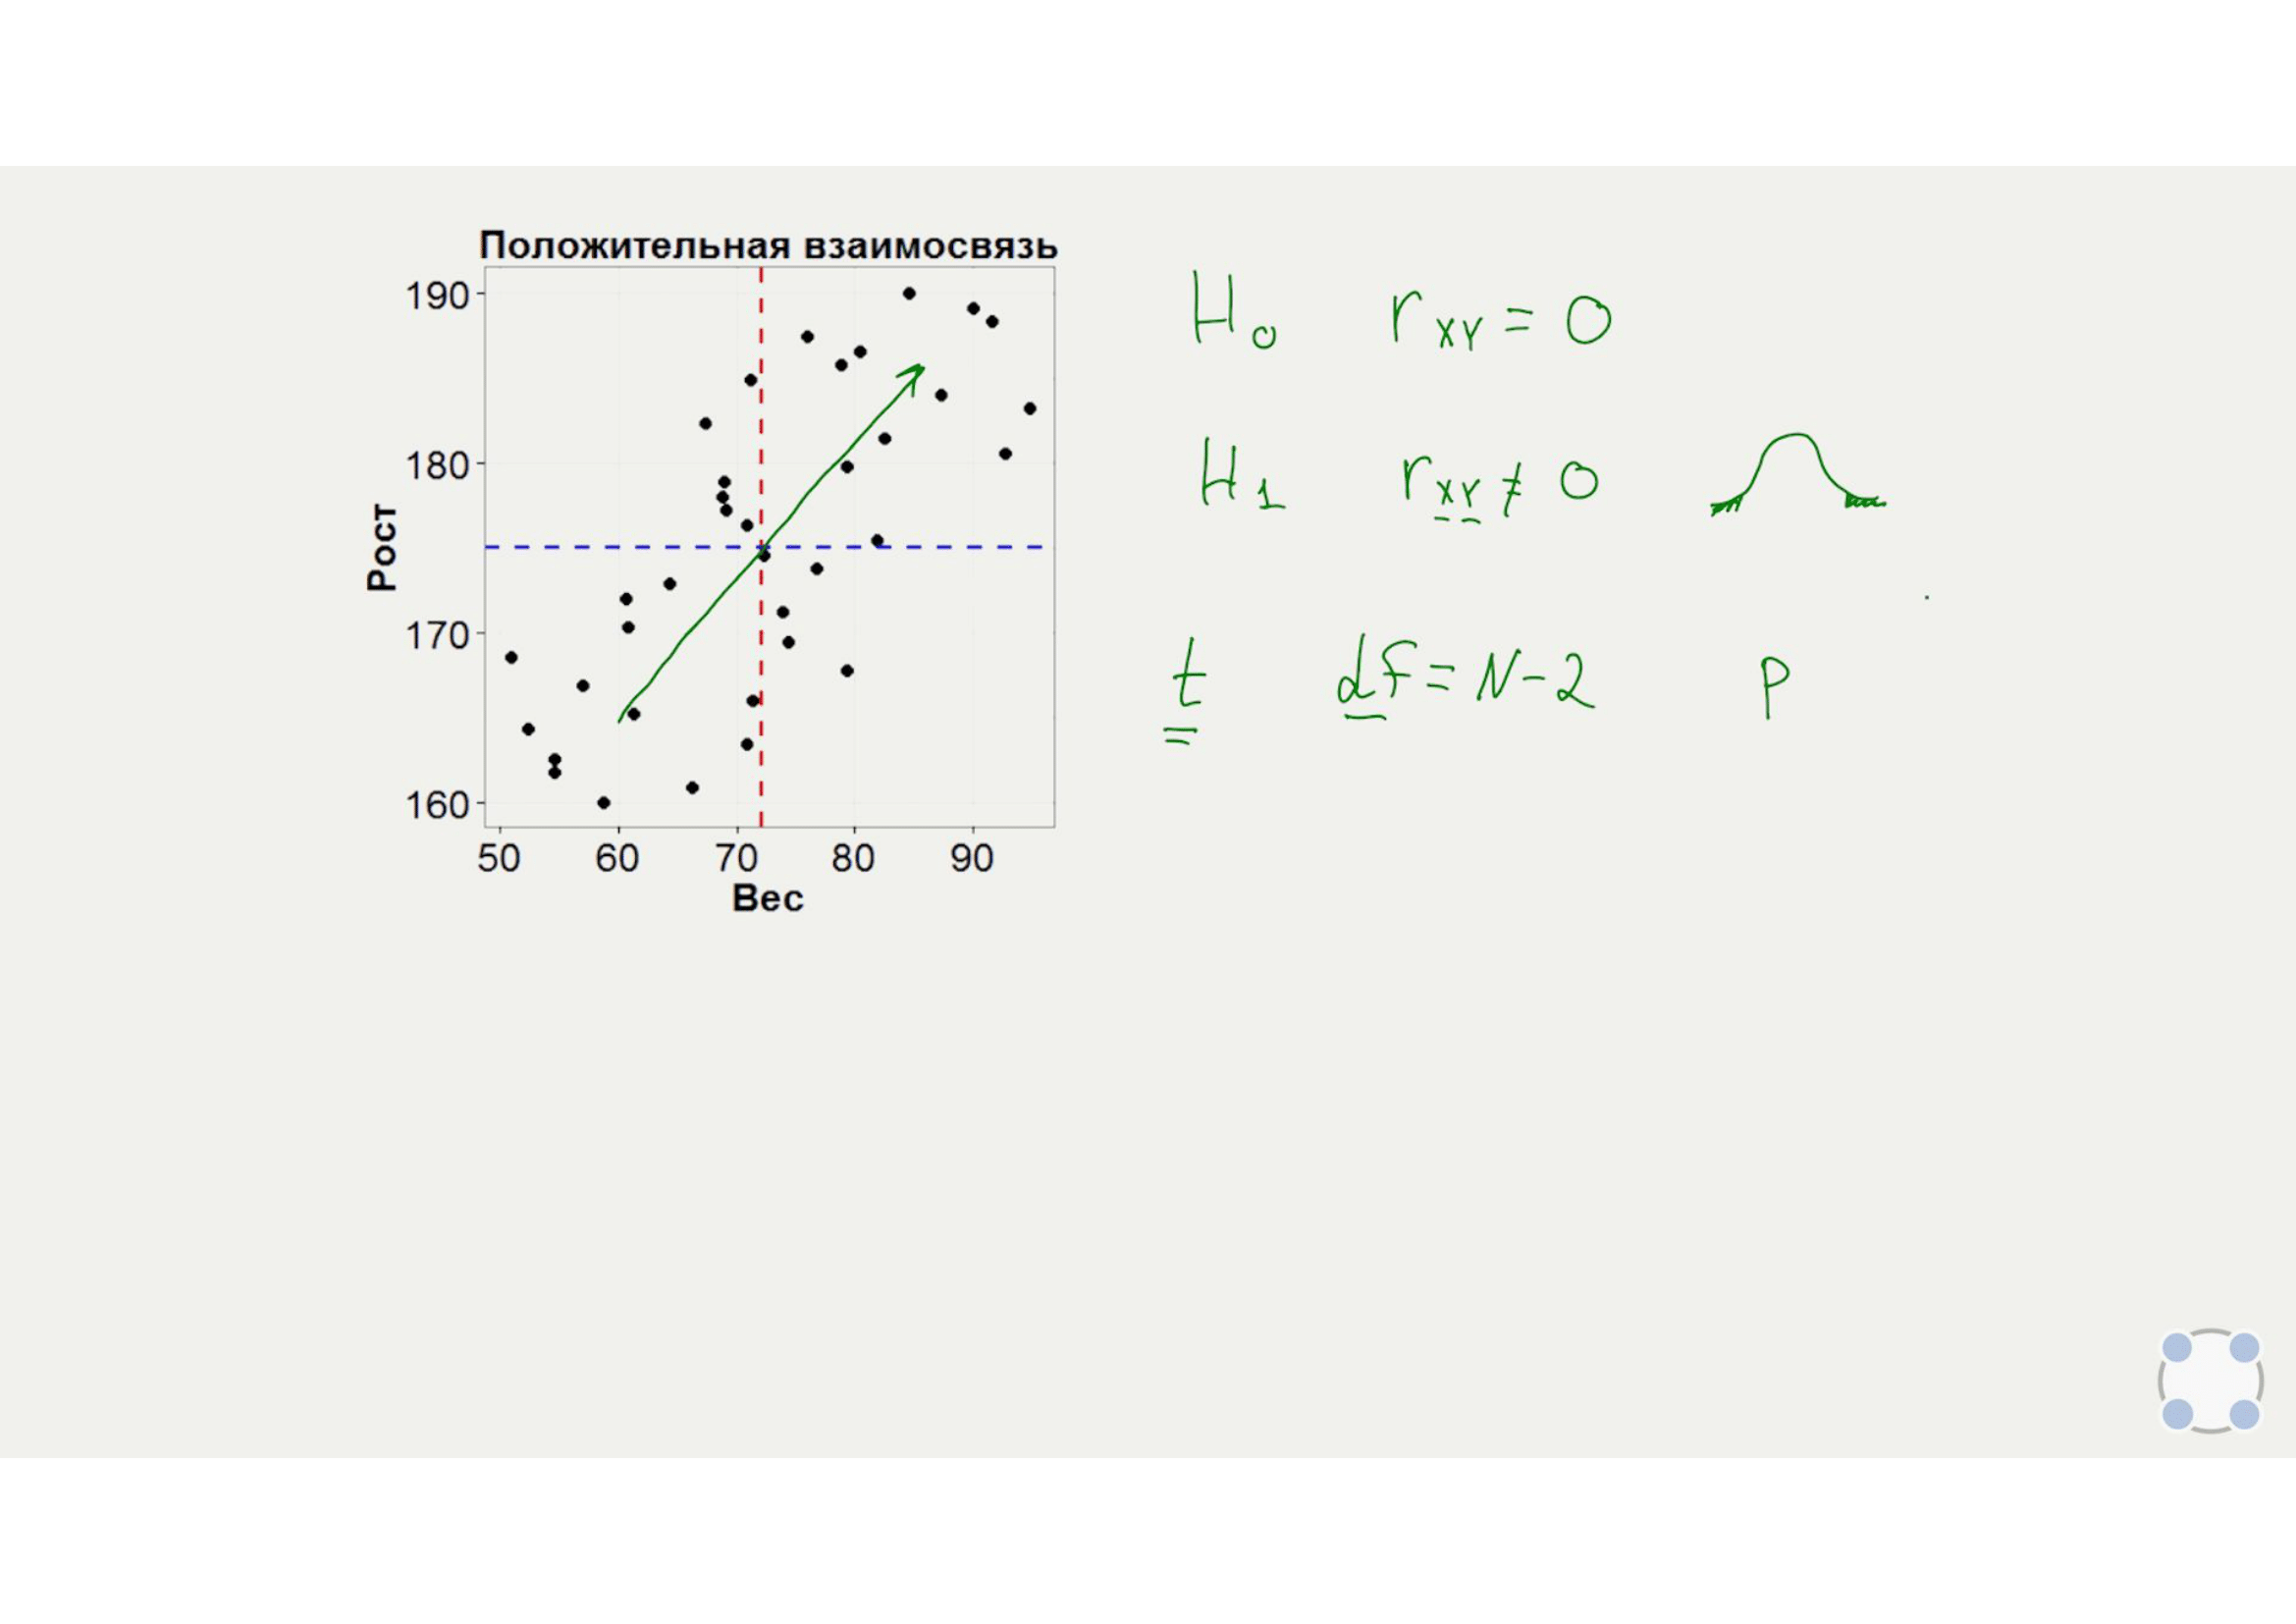 Положительная взаимосвязь
190
180
170
160
Рост
50 60 70 80 90
Вес
H₀ rXY = 0
H₁ rXY ≠ 0
t df = N - 2 p